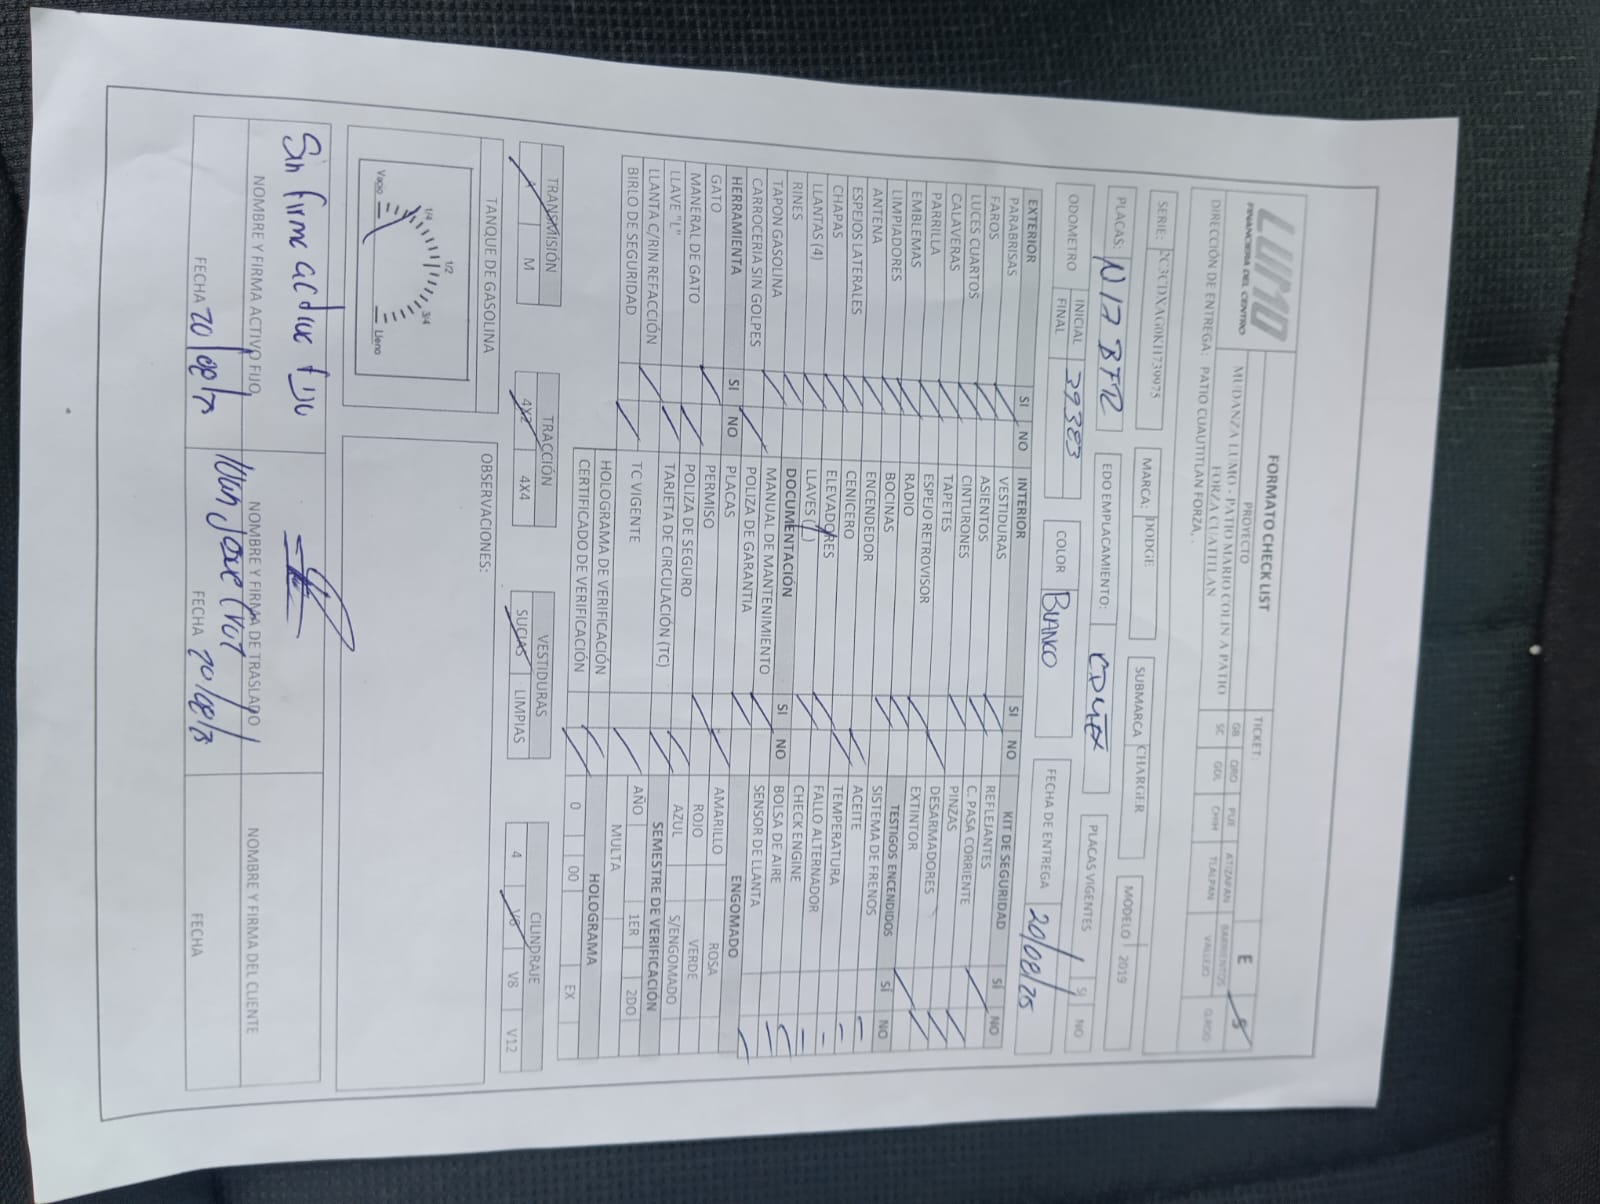 LUMO
FINANCIERA DEL CENTRO
FORMATO CHECK LIST
TICKET:
E S
PROYECTO
MUDANZA LUMO - PATIO MARIO COLIN A PATIO
FORZA CUATITLAN
GB QRO PUE ATIZAPAN BARRIENTOS
SC GDL CHIH TLALPAN VALLEJO
DIRECCIÓN DE ENTREGA: PATIO CUAUTITLAN FORZA..
SERIE: 2C3CDXAG0KH739975 MARCA: DODGE SUBMARCA CHARGER MODELO 2019
PLACAS: N17 BFR EDO EMPLACAMIENTO: CDMEX PLACAS VIGENTES SI NO
ODOMETRO INICIAL 39383 FINAL COLOR BLANCO FECHA DE ENTREGA 20/08/25
EXTERIOR SI NO INTERIOR SI NO KIT DE SEGURIDAD SI NO
PARABRISAS VESTIDURAS REFLEJANTES
FAROS ASIENTOS C. PASA CORRIENTE
LUCES CUARTOS CINTURONES PINZAS
CALAVERAS TAPETES DESARMADORES
PARRILLA ESPEJO RETROVISOR EXTINTOR
EMBLEMAS RADIO TESTIGOS ENCENDIDOS SI NO
LIMPIADORES BOCINAS SISTEMA DE FRENOS
ANTENA ENCENDEDOR ACEITE
ESPEJOS LATERALES CENICERO TEMPERATURA
CHAPAS ELEVADORES FALLO ALTERNADOR
LLANTAS (4) LLAVES ( ) CHECK ENGINE
RINES DOCUMENTACIÓN SI NO BOLSA DE AIRE
TAPON GASOLINA MANUAL DE MANTENIMIENTO SENSOR DE LLANTA
CARROCERIA SIN GOLPES POLIZA DE GARANTIA ENGOMADO
HERRAMIENTA SI NO PLACAS AMARILLO ROSA
GATO PERMISO ROJO VERDE
MANERAL DE GATO POLIZA DE SEGURO AZUL S/ENGOMADO
LLAVE "L" TARJETA DE CIRCULACIÓN (TC) SEMESTRE DE VERIFICACIÓN
LLANTA C/RIN REFACCIÓN TC VIGENTE AÑO 1ER 2DO
BIRLO DE SEGURIDAD HOLOGRAMA DE VERIFICACIÓN MULTA
CERTIFICADO DE VERIFICACIÓN HOLOGRAMA
0 00 EX
TRANSMISIÓN TRACCIÓN VESTIDURAS CILINDRAJE
A M 4X2 4X4 SUCIAS LIMPIAS 4 V6 V8 V12
TANQUE DE GASOLINA OBSERVACIONES:
Vacio 1/4 1/2 3/4 Lleno
Sin firma activo fijo
NOMBRE Y FIRMA ACTIVO FIJO NOMBRE Y FIRMA DE TRASLADO NOMBRE Y FIRMA DEL CLIENTE
FECHA FECHA FECHA